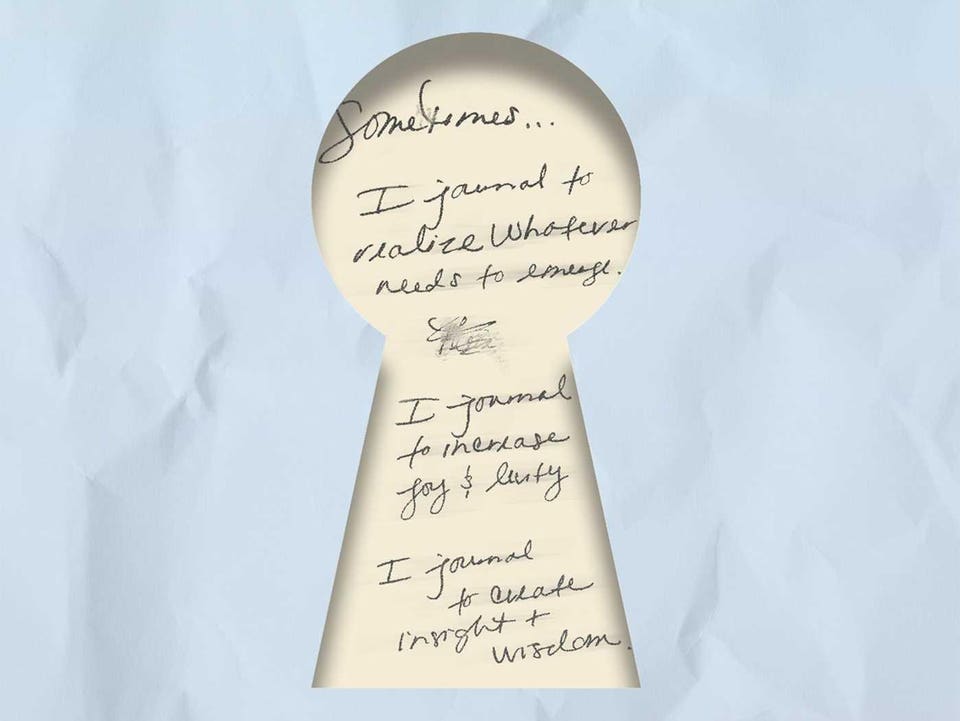 Sometimes...
I journal to
realize whatever
needs to emerge.
I journal
to increase
joy & levity
I journal
to create
insight +
wisdom.